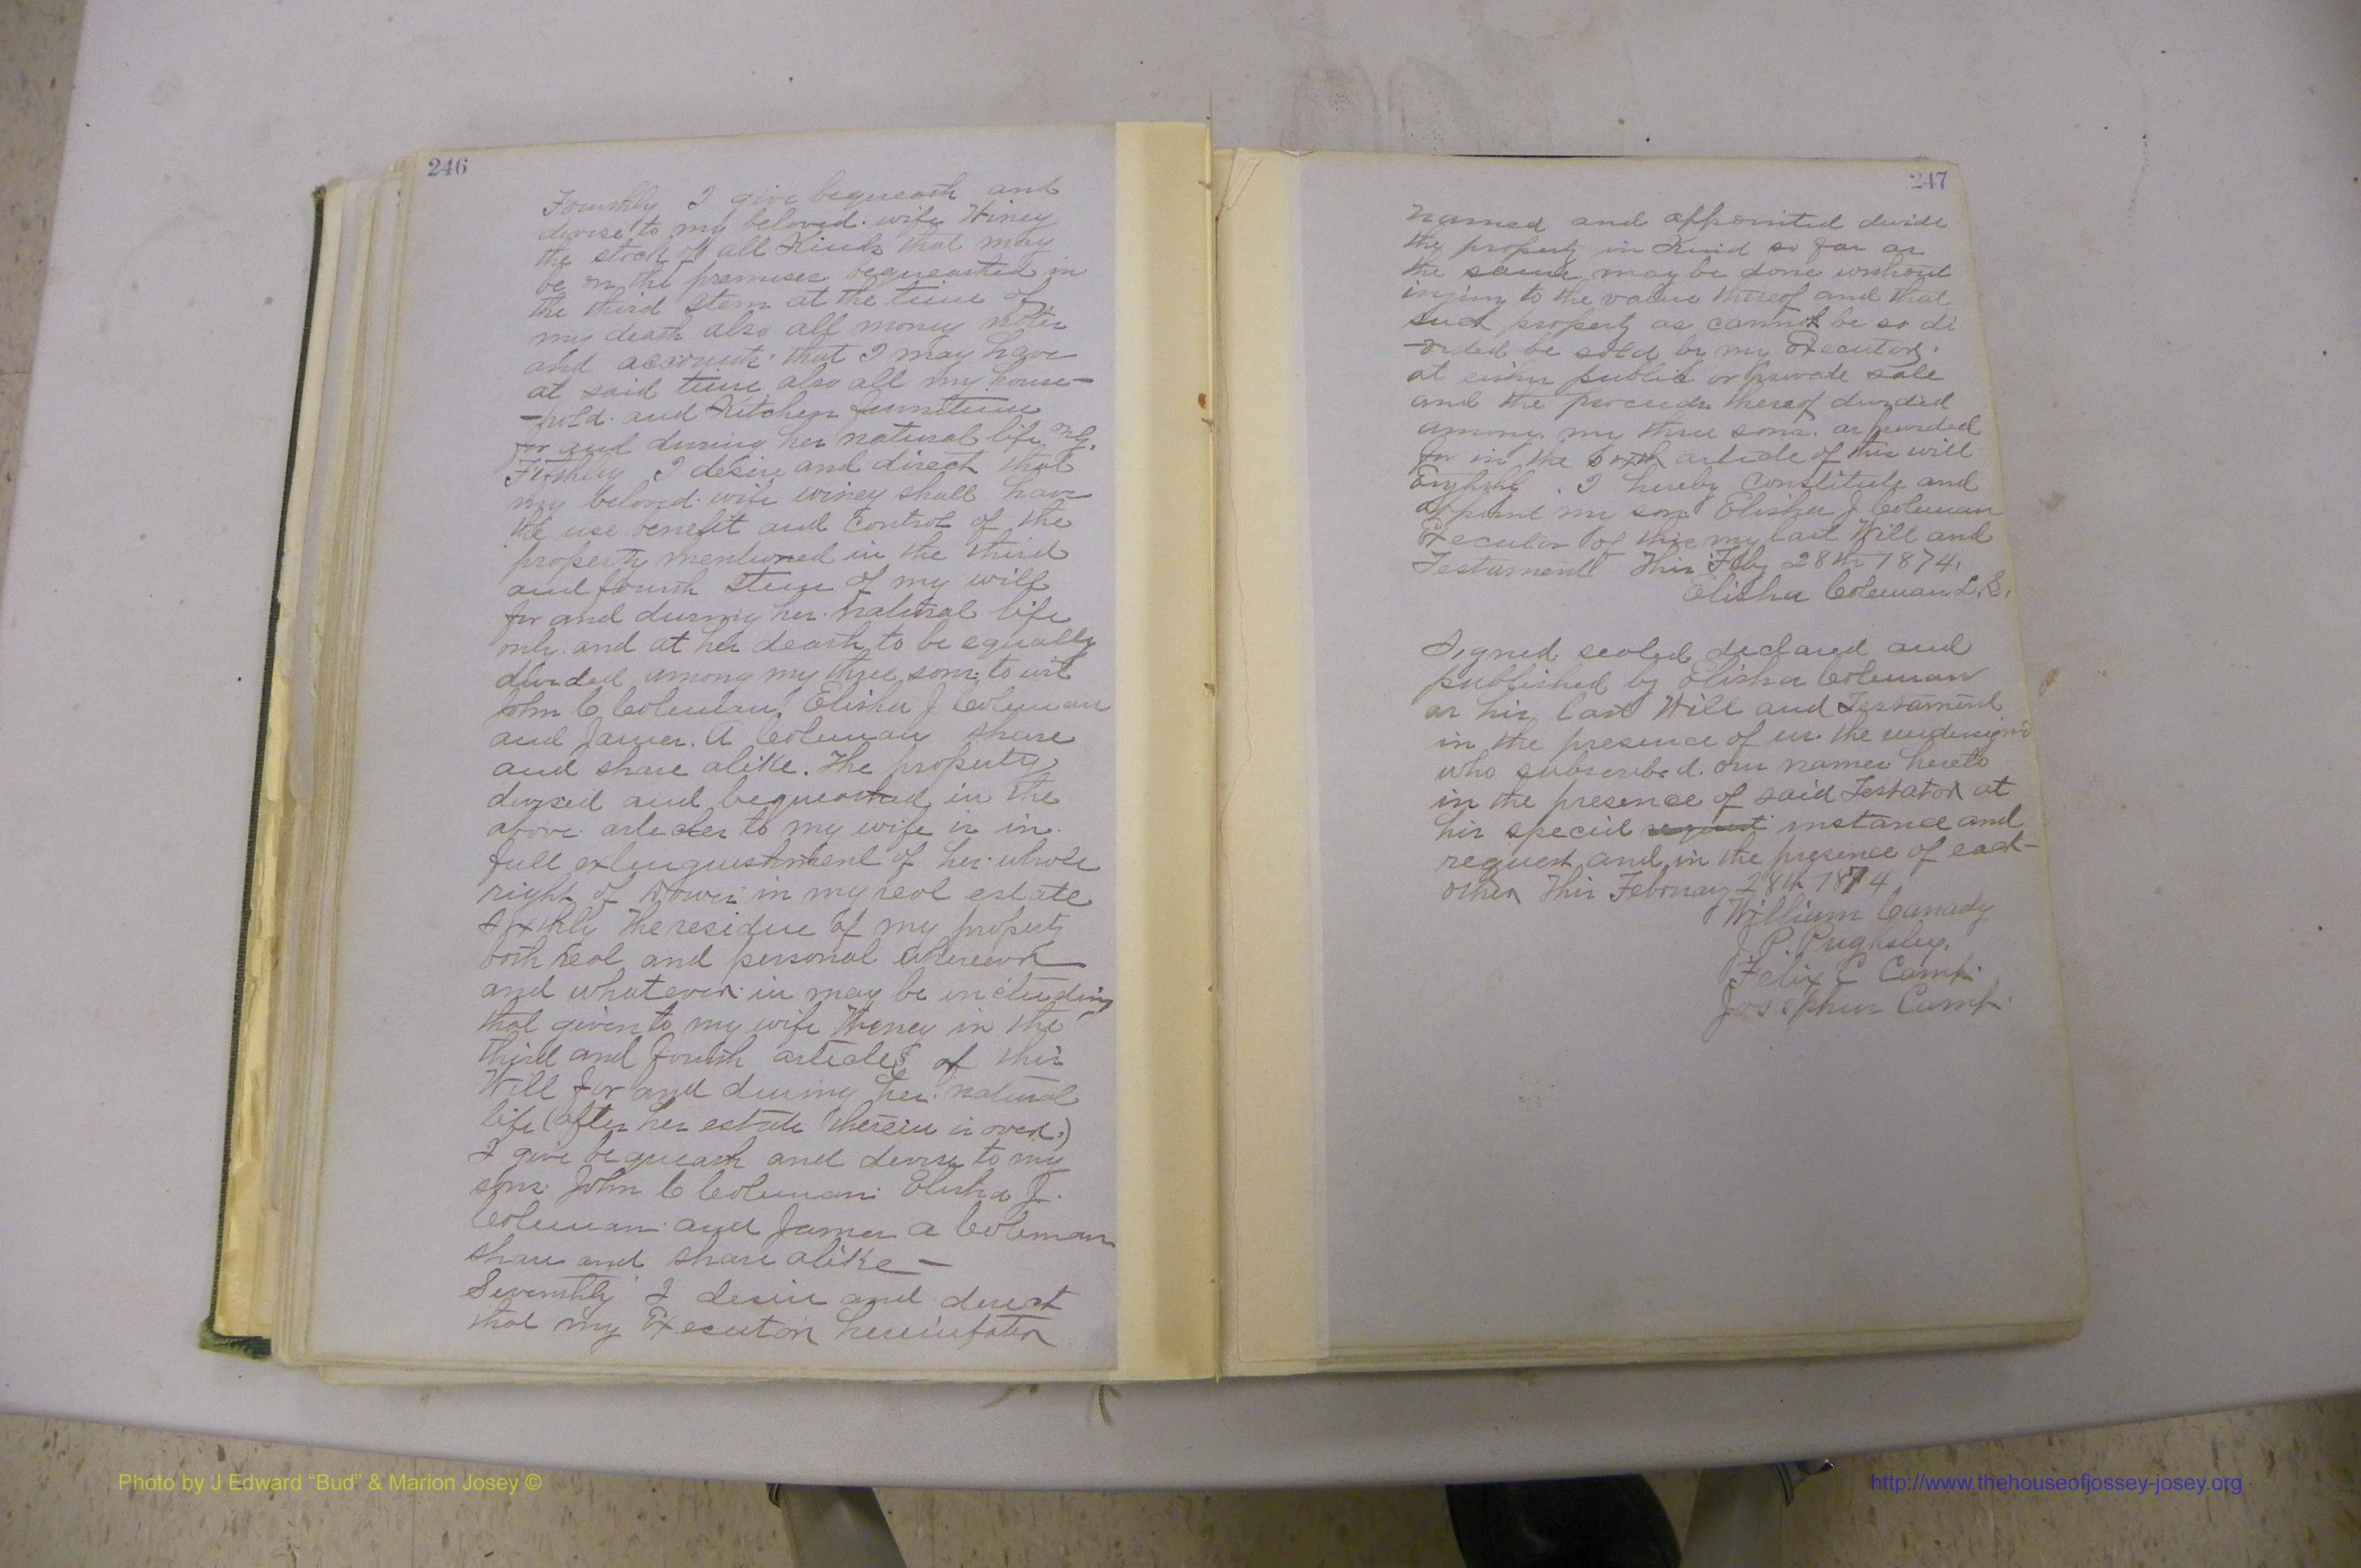 246
Fourthly I give bequeath and
devise to my beloved wife Winey
the stock of all Kinds that may
be on the premises bequeathed in
the third Item at the time of
my death also all money notes
and accounts that I may have
at said time also all my house-
-hold and Kitchen furniture
for and during her natural life only.
Fifthly I desire and direct that
my beloved wife winey shall have
the use benefit and control of the
property mentioned in the third
and fourth Item of my will
for and during her natural life
only and at her death to be equally
divided among my three sons to wit
John C Coleman, Elisha J Coleman
and James. A Coleman share
and share alike. The property
devised and bequeathed in the
above articles to my wife is in
full extinguishment of her whole
right of Dower in my real estate
Sixthly The residue of my property
both real and personal wherever
and whatever in may be including
that given to my wife Winey in the
third and fourth articles of this
Will for and during her natural
life (after her estate therein is over)
I give bequeath and devise to my
sons John C Coleman Elisha J.
Coleman and James a Coleman
share and share alike -
Seventhly I desire and direct
that my Executor hereinafter
247
named and appointed divide
the property in Kind so far as
the same may be done without
injury to the value thereof and that
such property as cannot be so di
-vided be sold by my Executor
at either public or private sale
and the proceeds thereof divided
among my three sons as provided
for in the sixth article of this will
Eighthly. I hereby Constitute and
appoint my son Elisha J Coleman
Executor of this my last Will and
Testament This Feby 28th 1874.
Elisha Coleman L.S.
Signed sealed declared and
published by Elisha Coleman
as his last Will and Testament
in the presence of us the undersign'd
who subscribed our names hereto
in the presence of said Testator at
his special request instance and
request and in the presence of each-
other This February 28th 1874
William Canady
J. P. Pughsley.
Felix C Camp.
Josephus Camp.
Photo by J Edward “Bud” & Marion Josey ©
http://www.thehouseofjossey-josey.org